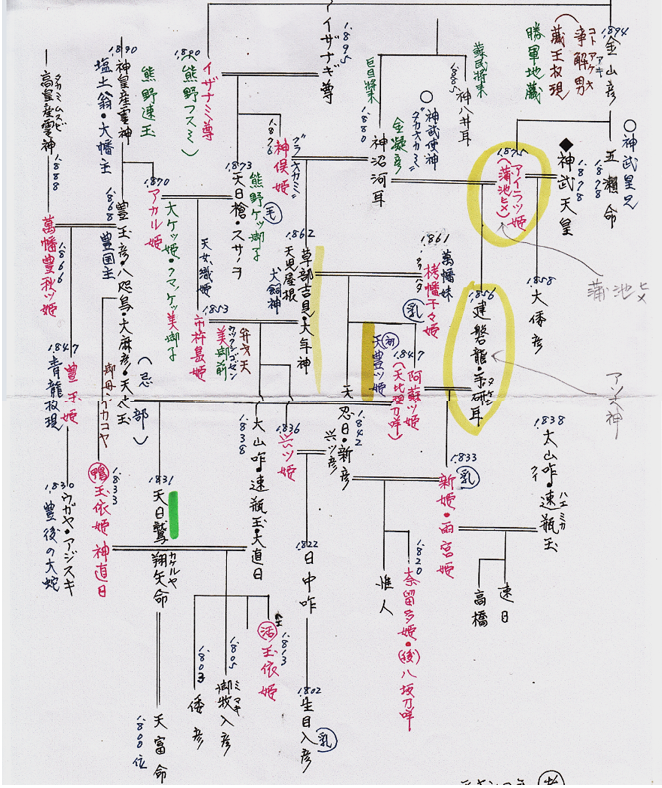 1894
金山彦
コトアケ アキ
争解男
(蔵王权現
勝軍地蔵
〇神武皇兄
五瀬命
1878
◆神武天皇
1878
1875
アイラツ姫
(蒲池ヒメ)
蒲池ヒメ
1858
大倭彦
義民将来
1885
神八井耳
巨旦将来
1880
神沼河耳
金凝彦
〇神武使神
1895
イザナギ尊
1880
イザナミ尊
(大熊野フスミ)
1876
神俣姫
1873
天日槍・スサノヲ
熊野ケツ御子
1890
神皇産霊神
塩土翁・大幡主
熊野速玉
タカミムスビ
高皇産霊神
1888
1870
アカル姫
大ケツ姫・クマノケツ美御子
1868
豊玉彦・八咫烏・大麻彦・天太玉
豊国主
(忌部)
1866
萬幡豊秋ツ姫
天女織姫
1853
市杵島姫
弁才天
美御前
1862
草部吉見・大年神
天児屋根
犬飼神
1861
萬幡妹
栲幡千々姫
乳
1856
建磐龍・手研耳
アソ大神
天豊ツ姫
1847
阿蘇ツ姫
(天比理刀咩)
1842
天忍日・新彦
1847
豊玉姫
青龍权現
1838
大山咋・速瓶玉・大直日
1836
興ツ姫
興ツ彦
1838
大山咋・速瓶玉
クイ
ハエミカ
1833
新姫・雨宮姫
乳
1833
鴨
玉依姫 神直日
1831
天日鷲
カケルヤ
翔矢命
1830
ウガヤ・アジスキ
豊後の大蛇
1822
日中咋
1820
奈留多姫・(後)八坂刀咩
惟人
速日
高橋
1813
活
玉依姫
1805
ミマヤ
御牧入彦
1803
倭彦
1802
生目入彦
乳
天富命
1800位